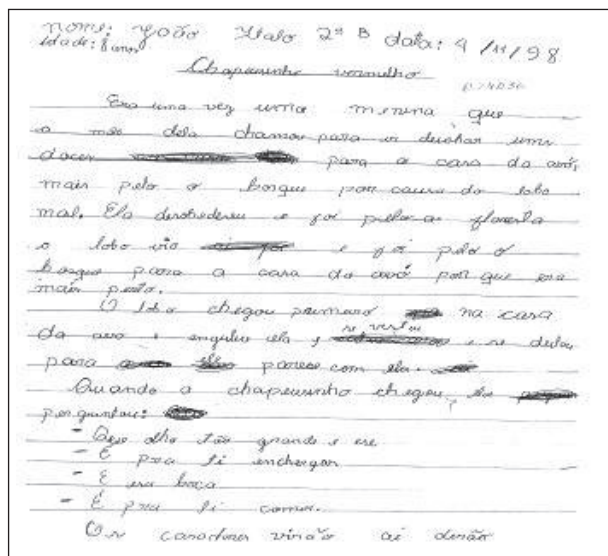 nome: João Italo 2ª B data: 4/11/98
idade: 8 anos
Chapeusinho vermelho
Era uma vez uma menina que
a mãe dela chamou para ir deichar uns
doces para a casa da avó,
mais pelo o bosque por causa do lobo
mal. Ela desobedeseu e foi pela a floresta
o lobo vio e foi pelo o
bosque para a casa da avó por que era
mais perto.
O lobo chegou primeiro na casa
da avó e engoliu ela, se vestiu e se deitou
para parese com ela.
Quando a chapeusinho chegou, ela
perguntou:
- Que olho tão grande e ese
- É pra ti enchergar
- E esa boca
- É pra ti comer.
Os casadores virão ai